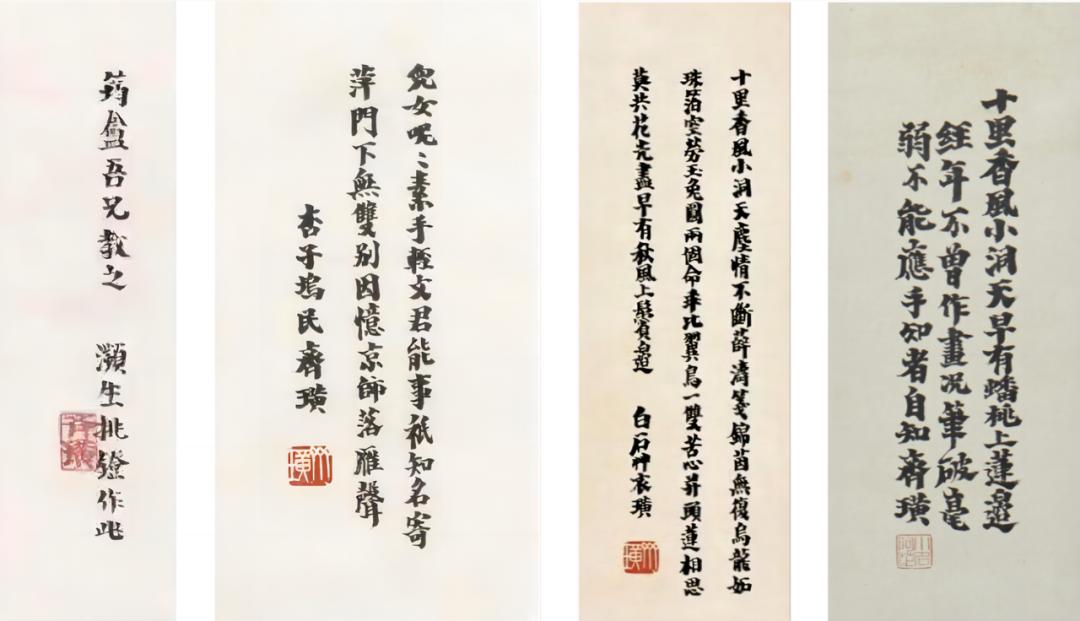 筠盦吾兄教之 瀕生挑鐙作此
兒女呢〻素手輕文君能事祇知名寄
萍門下無雙別因憶京師落雁聲
杏子塢民齊璜
十里香風小洞天塵情不斷薛濤箋錦茵無復烏龍妬
珠箔空勞玉兔圓兩個命乖比翼鳥一雙苦心并頭蓮相思
莫共花光盡早有秋風上鬢邊 白石衣璜
十里香風小洞天早有蟠桃上蓮邊
經年不曾作畫況筆破毫
弱不能應手知者自知齊璜